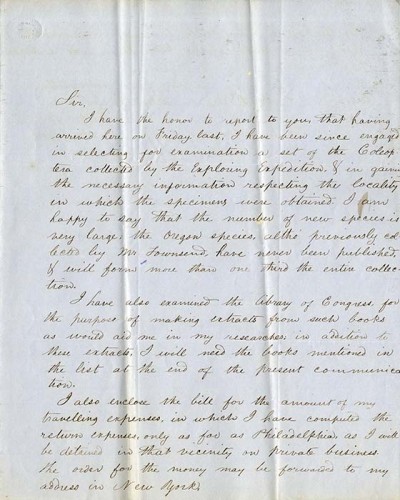 Sir,
I have the honor to report to you, that having
arrived here on Friday last, I have been since engaged
in selecting for examination a set of the Coleop
tera collected by the Exploring Expedition, & in gaining
the necessary information respecting the locality
in which the specimens were obtained. I am
happy to say that the number of new species is
very large the Oregon species, altho' previously col
lected by Mr Townsend, have never been published,
& will form more than one third the entire collec-
tion.
I have also examined the library of Congress, for
the purpose of making extracts from such books
as would aid me in my researches; in addition to
these extracts, I will need the books mentioned in
the list at the end of the present communica
tion.
I also enclose the bill for the amount of my
travelling expenses, in which I have computed the
return expenses, only as far as Philadelphia as I will
be detained in that vecinity on private business.
The order for the money may be forwarded to my
address in New York.